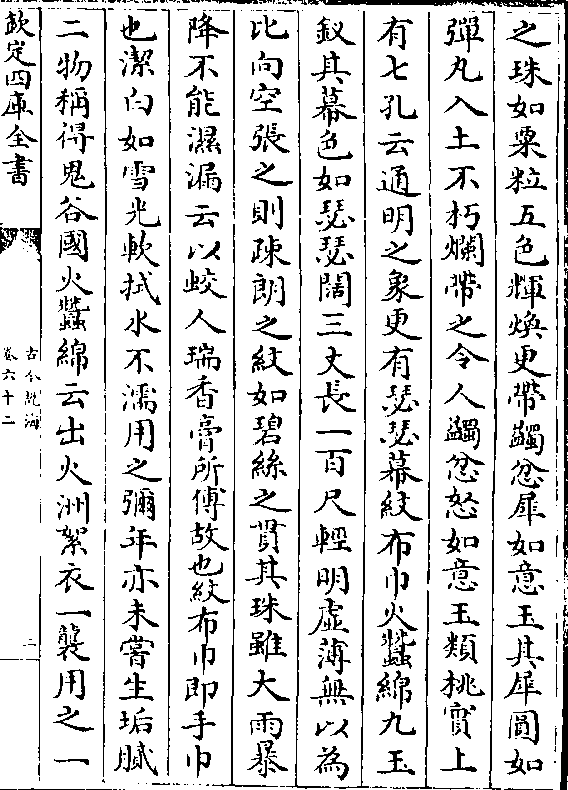 之珠如粟粒五色輝煥更帶蠲忿犀如意玉其犀圓如
彈丸入土不朽爛帶之令人蠲忿怒如意玉類桃實上
有七孔云通明之象更有瑟瑟幕紋布巾火蠶綿九玉
釵其幕色如瑟瑟闊三丈長一百尺輕明虛薄無以為
比向空張之則疎朗之紋如碧絲之貫其珠雖大雨暴
降不能濕漏云以蛟人瑞香膏所傅故也紋布巾即手巾
也潔白如雪光軟拭水不濡用之彌年亦未嘗生垢膩
二物稱得鬼谷國火蠶綿云出火洲絮衣一襲用之一
欽定四庫全書
古今說海
卷六十二
二